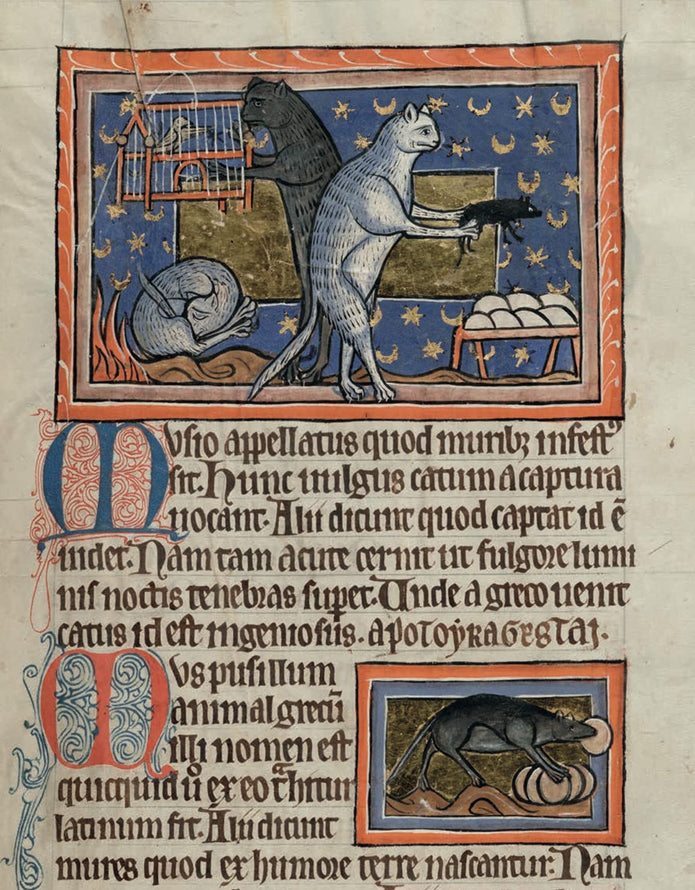 Musio appellatus quod muribꝫ infestꝰ
sit. Hunc uulgus catum a captura
uocant. Alii dicunt quod captat id ē
uidet. Nam tam acute cernit ut fulgore lumi
nis noctis tenebras supet. Unde a greco uenit
catus id est ingeniosus. ΑΠΟΤΟΥΚΑΘΕΣΤΑΙ.
Mus pusillum
animal grecū
illi nomen est
quicquid ů ex eo thitur
latinum fit. Alii dicunt
mures quod ex humore terre nascantur: Nam